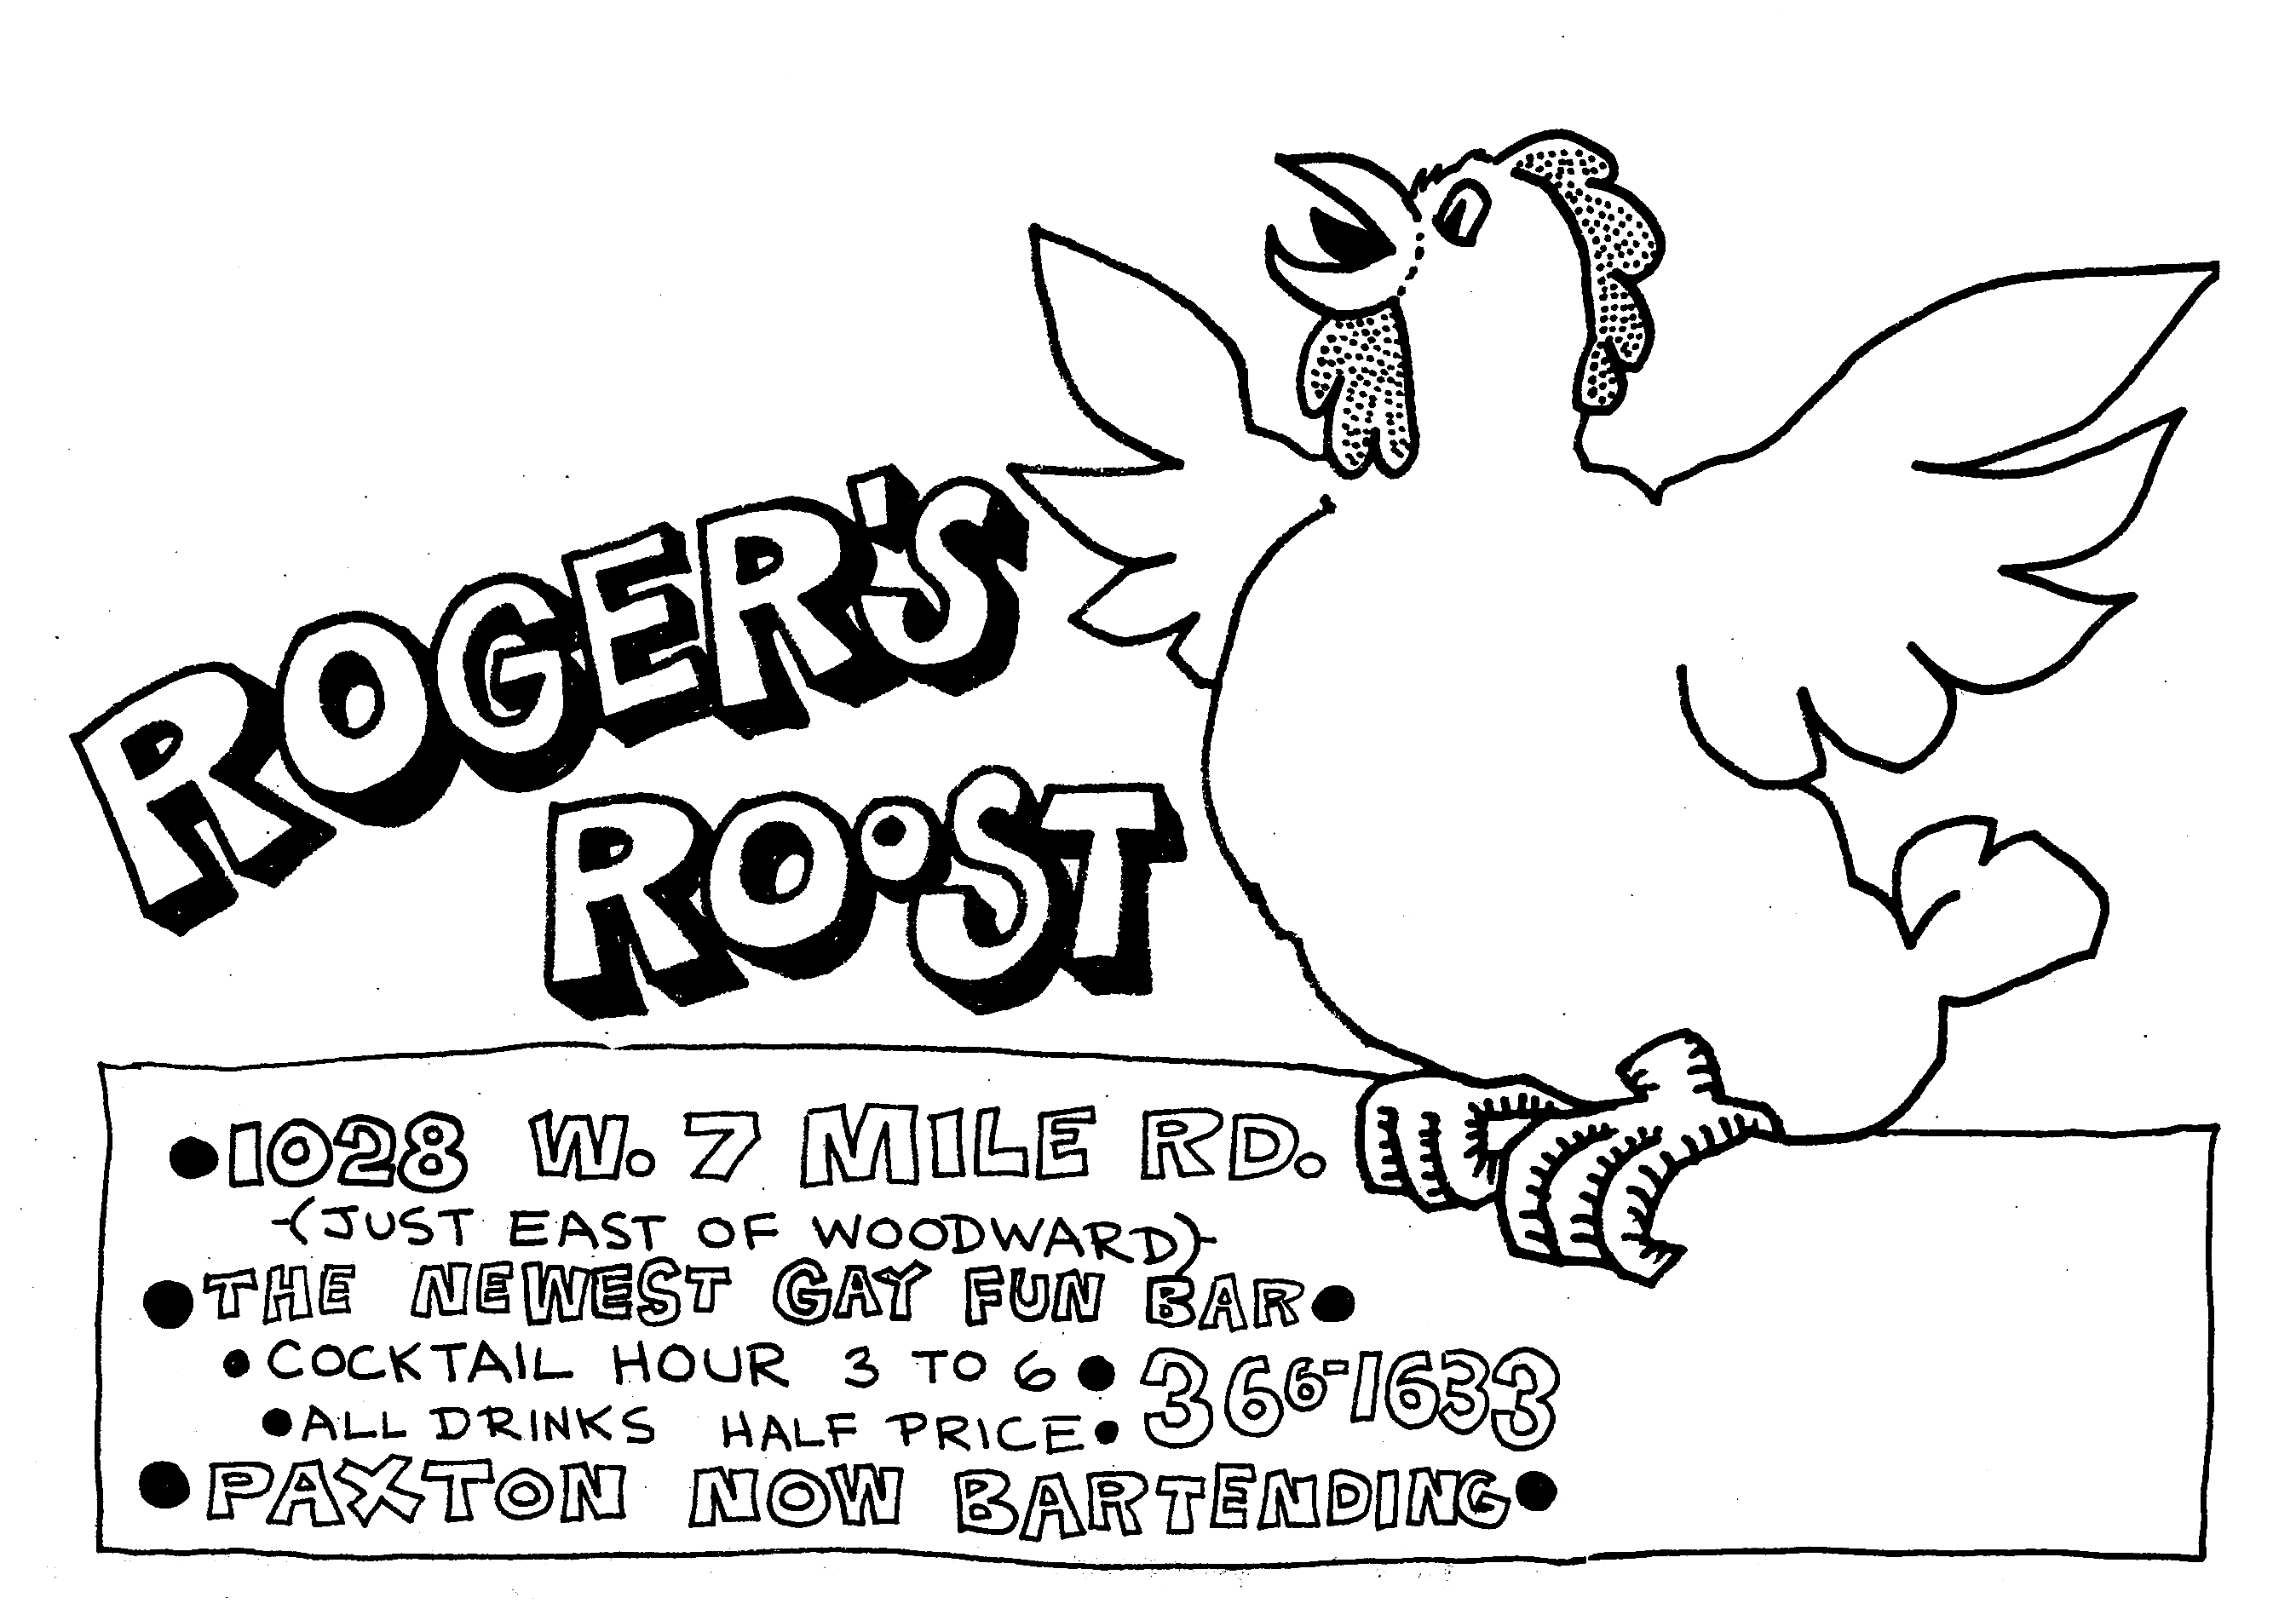 ROGER'S
ROOST
•1028 W. 7 MILE RD.
-(JUST EAST OF WOODWARD)-
•THE NEWEST GAY FUN BAR•
•COCKTAIL HOUR 3 TO 6•
•ALL DRINKS HALF PRICE•
366-1633
•PAXTON NOW BARTENDING•